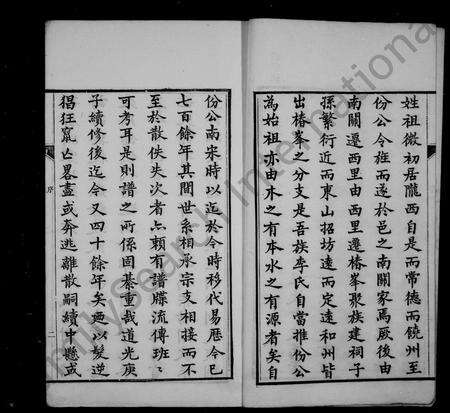 姓祖微初居隴西自是而常德而饒州至
份公令旌而遂於邑之南關家焉厥後由
南關遷西里由西里遷椿峯聚族建祠子
孫繁衍近而東山招坊遠而定遠和州皆
出椿峯之分支是吾族李氏自當推份公
為始祖亦由木之有本水之有源者矣自
份公南宋時以迄於今時移代易歷今已
七百餘年其間世系相承宗支相接而不
至於散佚失次者亦賴有譜牒流傳班二
可考耳是則譜之所係固綦重哉道光庚
子續修後迄今又四十餘年矣廼以髮逆
猖狂竄亡畧盡或奔逃離散嗣續中懸或
序
二
FamilySearch International